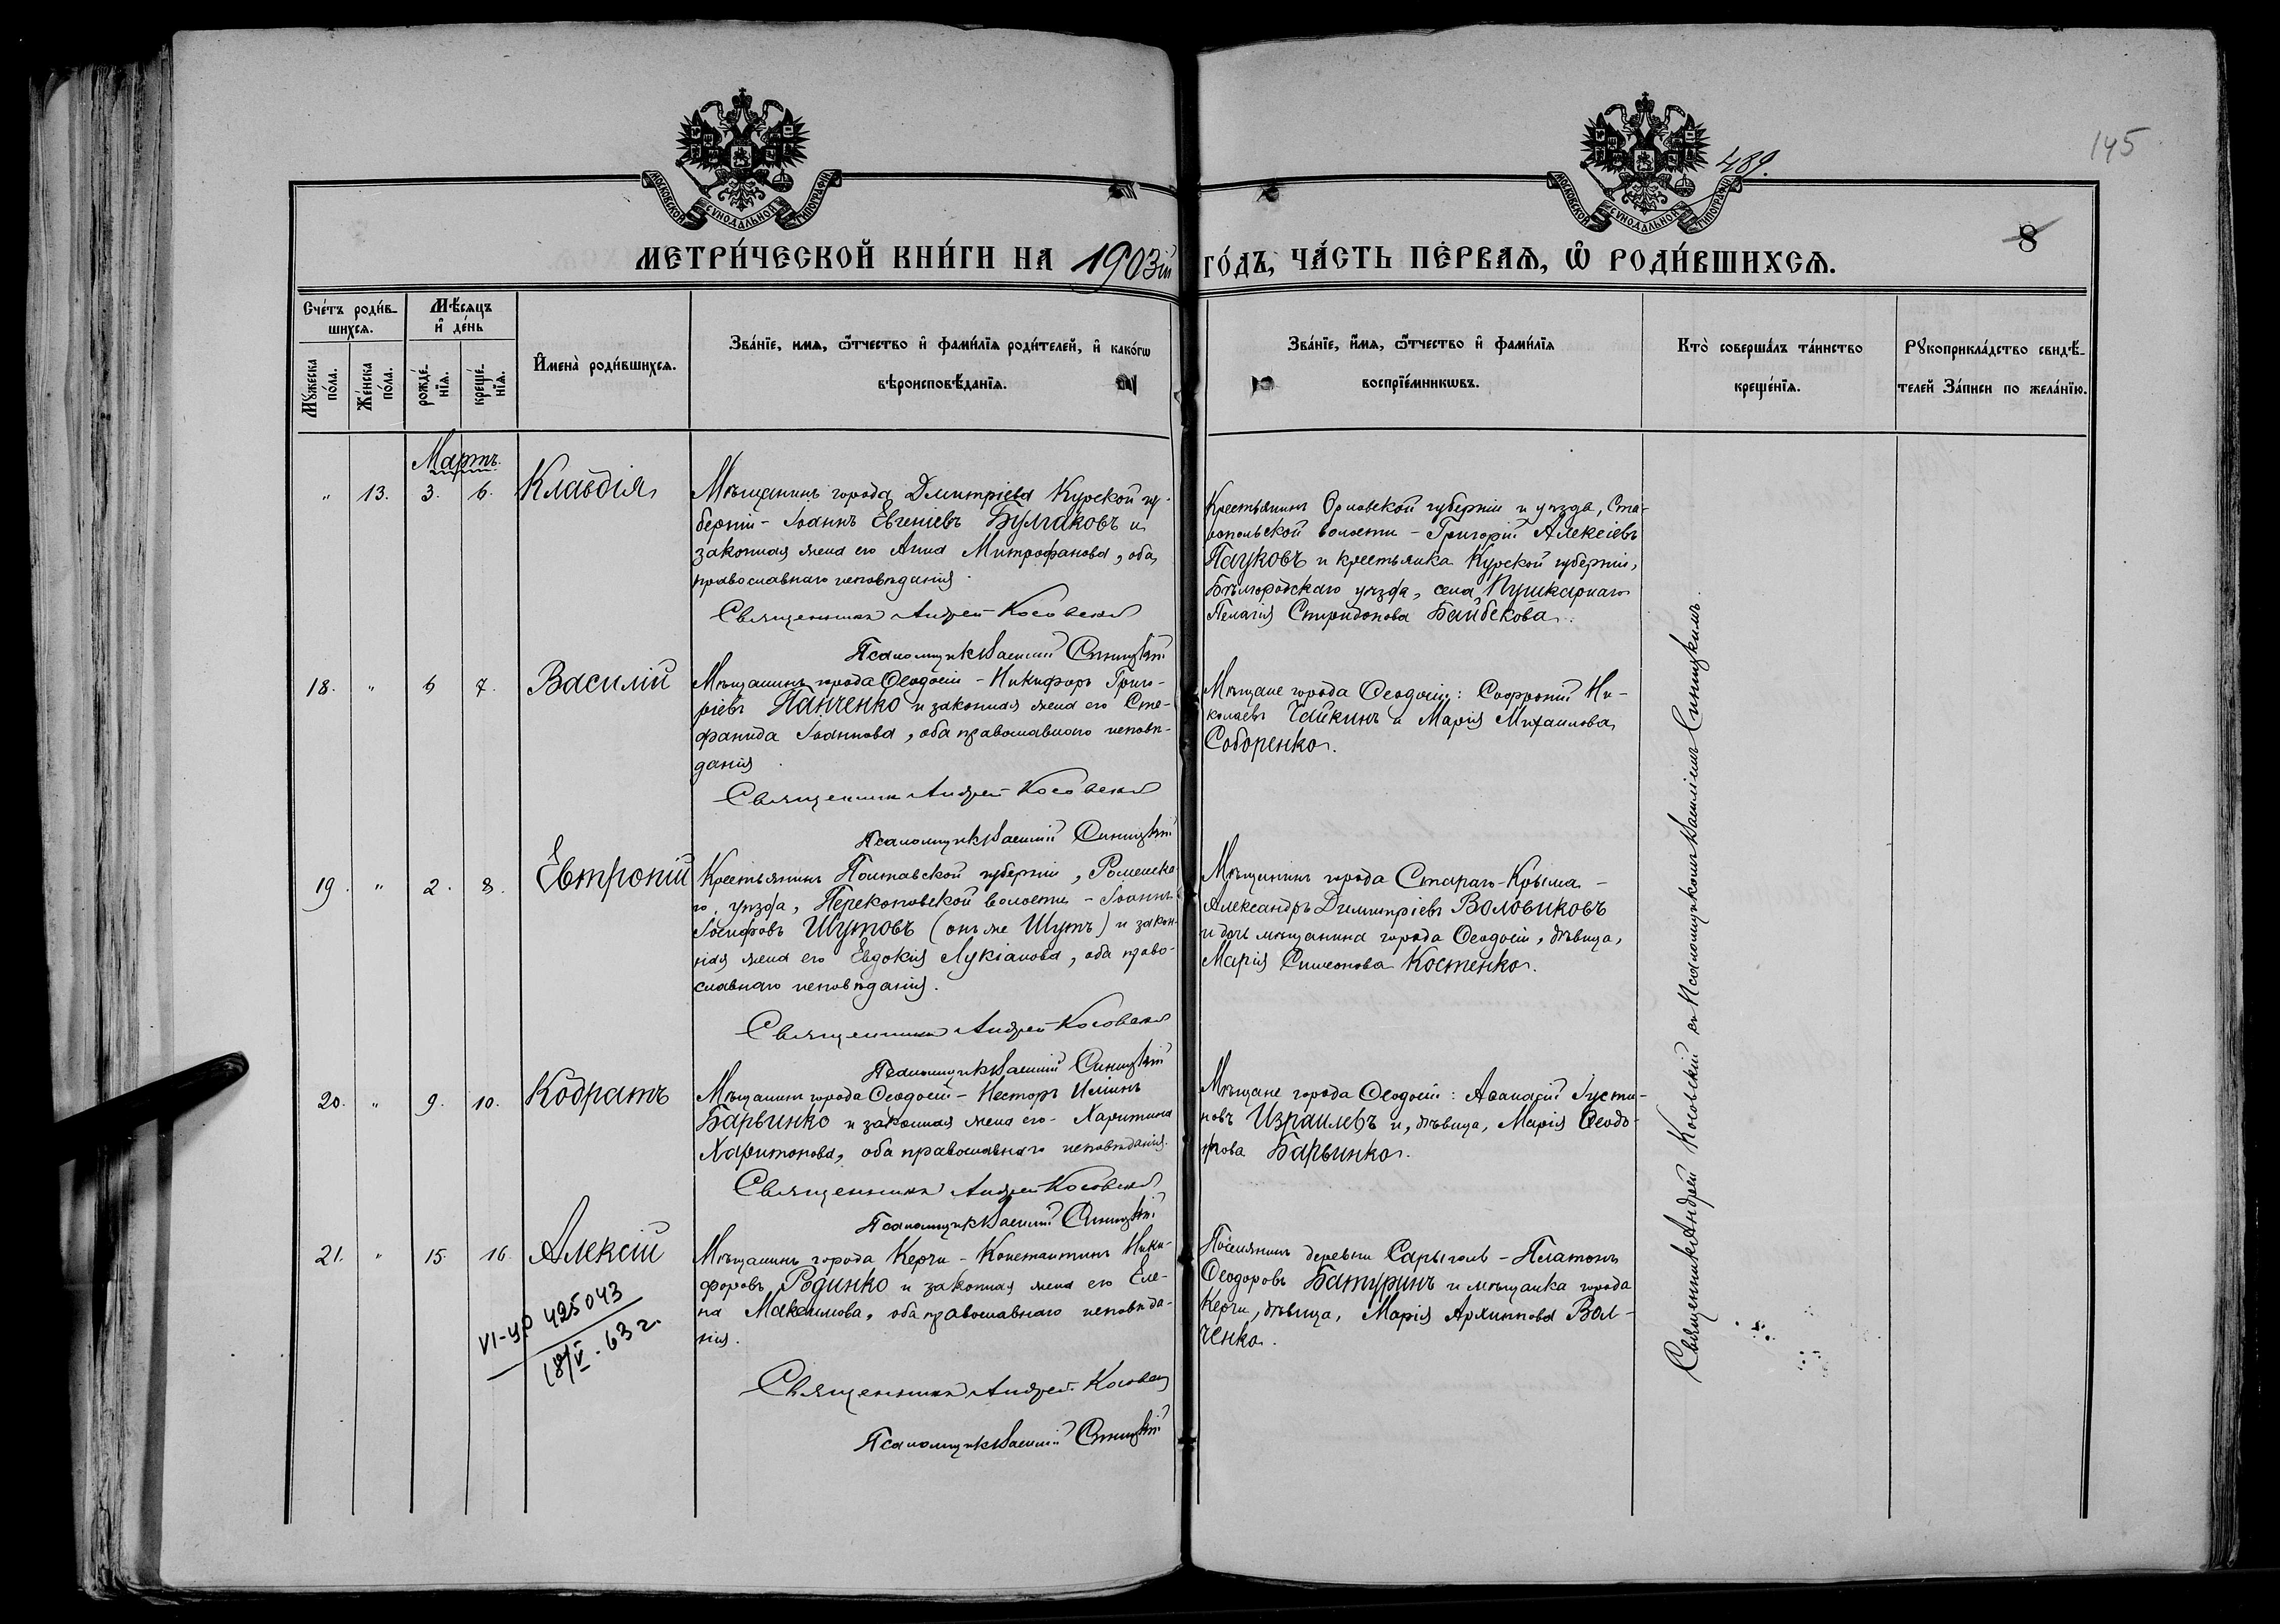 489.
145
8
МОСКОВСКОЙ СѴНОДАЛЬНОЙ ТИПОГРАФІИ
МОСКОВСКОЙ СѴНОДАЛЬНОЙ ТИПОГРАФІИ
МЕТРИ́ЧЕСКОЙ КНИ́ГИ НА 1903й ГО́ДЪ, ЧА́СТЬ ПЕ́РВАѦ, Ѡ҆ РОДИ́ВШИХСѦ.
Сче́тъ роди́в-
шихсѧ.
Мꙋ́жеска
по́ла.
Же́нска
по́ла.
Мѣ́сѧцъ
и҆ де́нь
рожде́-
нїѧ.
креще́-
нїѧ.
И҆мена̀ роди́вшихсѧ.
Зва́нїе, имѧ, ѻ҆́тчество и҆ фами́лїѧ роди́телей, и҆ како́гѡ
вѣроисповѣ́данїѧ.
Зва́нїе, и҆́мѧ, ѻ҆́тчество и҆ фами́лїѧ
воспрїе́мникѡвъ.
Кто̀ соверша́лъ та́инство
креще́нїѧ.
Рꙋкоприкла́дство свидѣ́-
телей За́писи по жела́нїю.
Мартъ.
" 13. 3. 6. Клавдія
Мѣщанинъ города Дмитріева Курской гу-
берніи - Іоаннъ Евгеніевъ Булгаковъ и
законная жена его Анна Митрофанова, оба
православнаго исповѣданія.
Священникъ Андрей Косовскій
Псаломщикъ Василій Синицкій
Крестьянинъ Орловской губерніи и уѣзда, Ста-
ропольской волости - Григорій Алексіевъ
Пауковъ и крестьянка Курской губерніи,
Бѣлгородскаго уѣзда, села Пушкарнаго
Пелагія Спиридонова Байбекова.
18. " 6 7. Василій
Мѣщанинъ города Ѳеодосіи - Никифоръ Григо-
ріевъ Панченко и законная жена его Сте-
фанида Іоаннова, оба православнаго исповѣ-
данія
Священникъ Андрей Косовскій
Псаломщикъ Василій Синицкій
Мѣщане города Ѳеодосіи: Софроній Ни-
колаевъ Чайкинъ и Марія Михаилова
Соборенко.
19. " 2. 8. Евтропій
Крестьянинъ Полтавской губерніи, Роменска-
го уѣзда, Перекоповской волости - Іоаннъ
Іосифовъ Шутовъ (онъ же Шутъ) и закон-
ная жена его Евдокія Лукіанова, оба право-
славнаго исповѣданія.
Священникъ Андрей Косовскій
Псаломщикъ Василій Синицкій
Мѣщанинъ города Стараго-Крыма -
Александръ Димитріевъ Воловиковъ
и дочь мѣщанина города Ѳеодосіи, дѣвица,
Марія Симеонова Костенко.
20. " 9. 10. Кодратъ
Мѣщанинъ города Ѳеодосіи - Несторъ Иліинъ
Барвинко и законная жена его - Харитина
Харитонова, оба православнаго исповѣданія.
Священникъ Андрей Косовскій
Псаломщикъ Василій Синицкій
Мѣщане города Ѳеодосіи: Аѳанасій Іусти-
новъ Израилевъ и, дѣвица, Марія Ѳеодо-
рова Барвинко.
21. " 15. 16. Алексій
Мѣщанинъ города Керчи - Константинъ Ники-
форовъ Родинко и законная жена его Еле-
на Максимова, оба православнаго исповѣда-
нія.
Священникъ Андрей Косовскій
Псаломщикъ Василій Синицкій
Поселянинъ деревни Сарыголь - Платонъ
Ѳеодоровъ Батуринъ и мѣщанка города
Керчи, дѣвица, Марія Архиппова Вол-
ченко.
VI-УО 425043
18/V - 63 г.
Священникъ Андрей Косовскій съ Псаломщикомъ Василіемъ Синицкимъ.